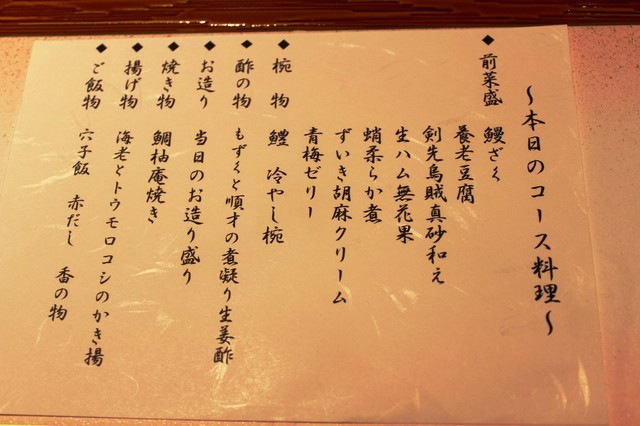 ～本日のコース料理～
◆前菜盛 鰻ざく
養老豆腐
剣先烏賊真砂和え
生ハム無花果
蛸柔らか煮
ずいき胡麻クリーム
青梅ゼリー
◆椀物 鱧 冷やし椀
◆酢の物 もずくと順才の煮凝り生姜酢
◆お造り 当日のお造り盛り
◆焼き物 鯛柚庵焼き
◆揚げ物 海老とトウモロコシのかき揚
◆ご飯物 穴子飯 赤だし 香の物